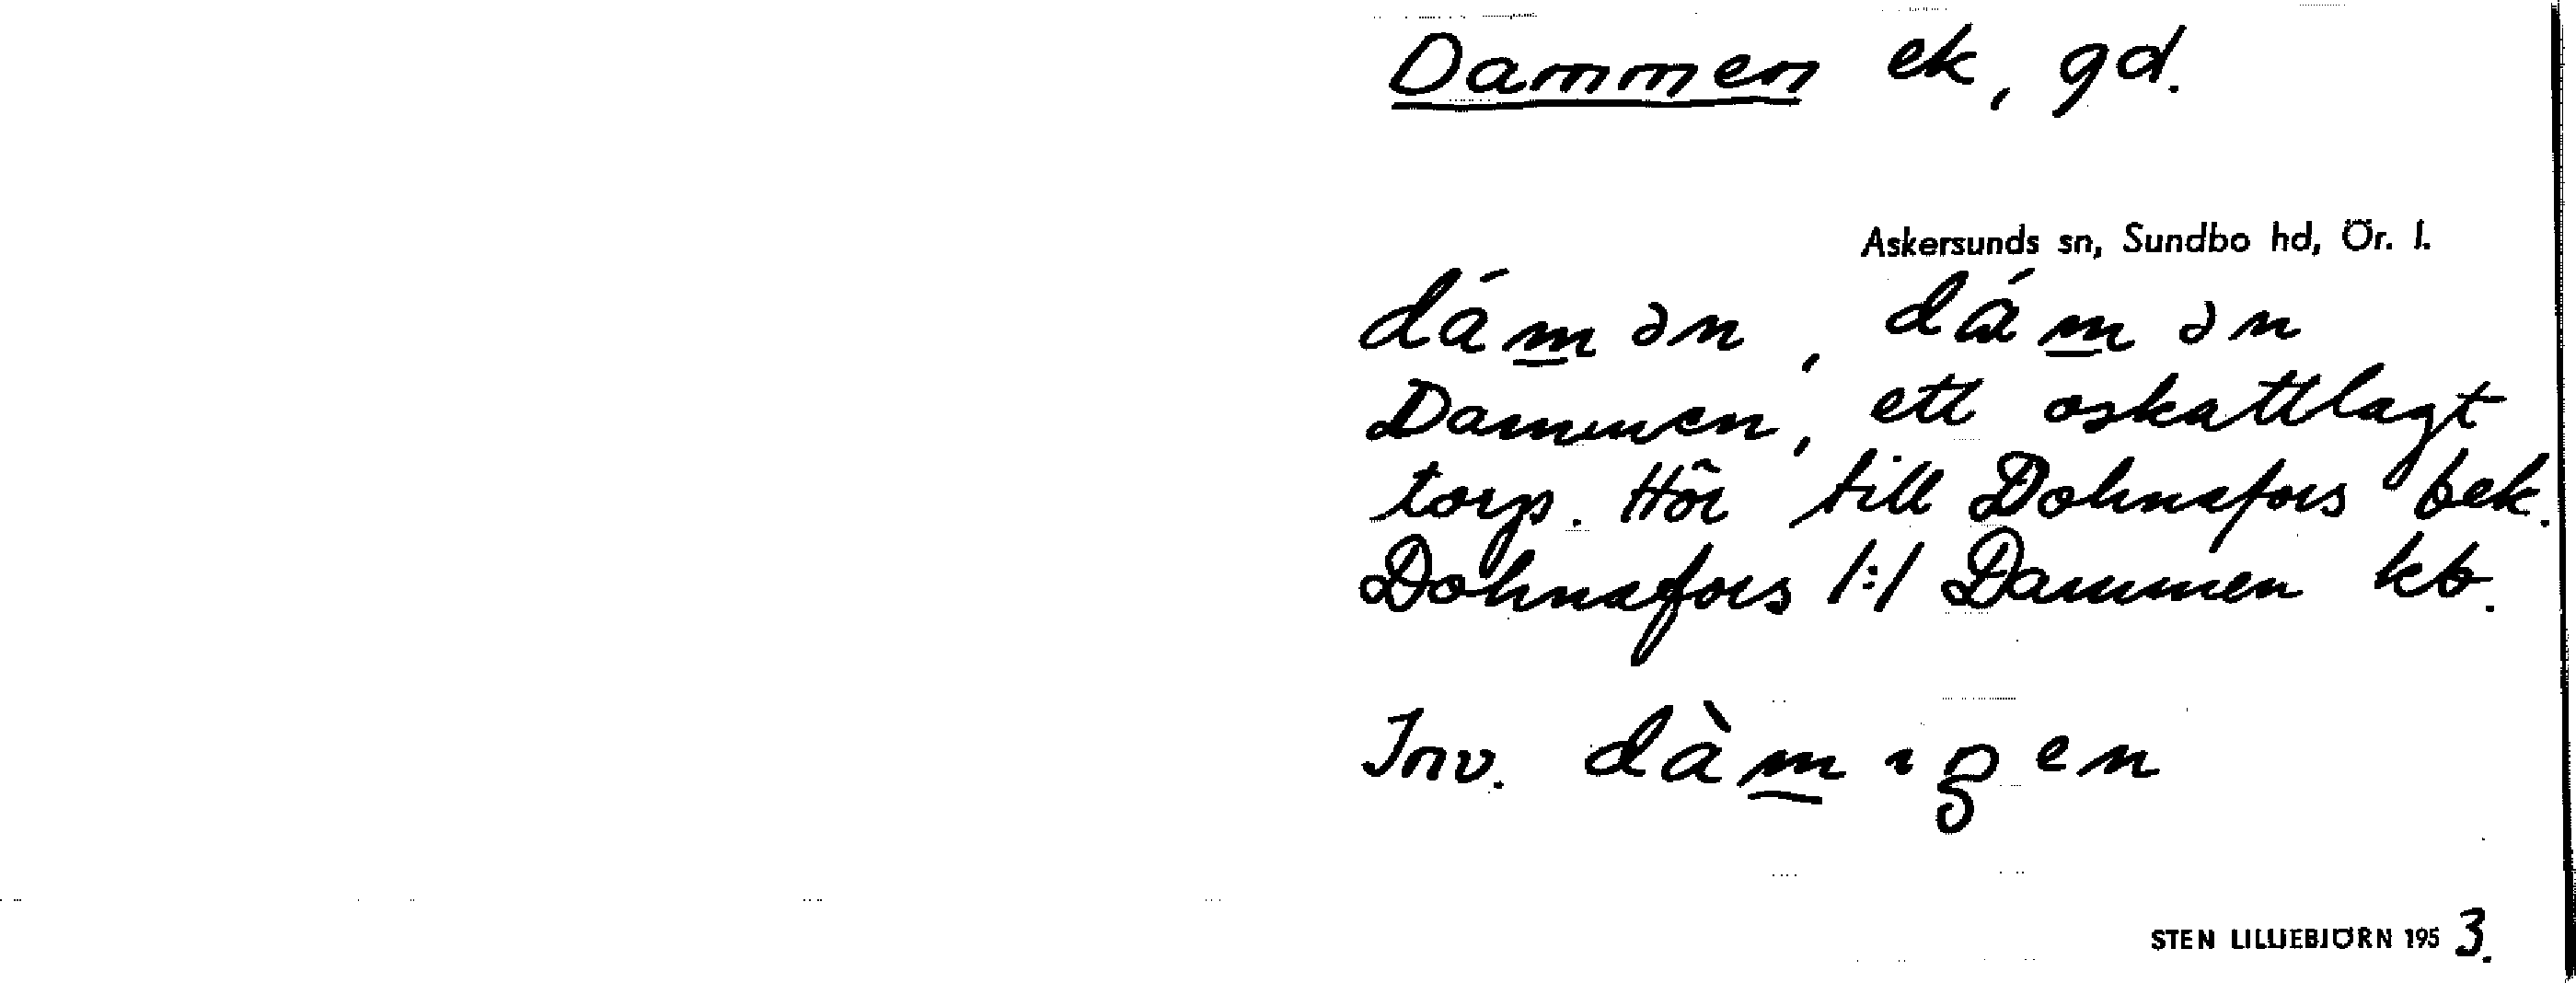 Dammen ek, gd.
Askersunds sn, Sundbo hd, Ör. l.
dám̲ən, dám̲ən
Dammen, ett oskattlagt
torp. Hör till Dohnafors bek.
Dohnafors 1:1 Dammen kb.
Inv.
STEN LILLIEBJÖRN 1953.